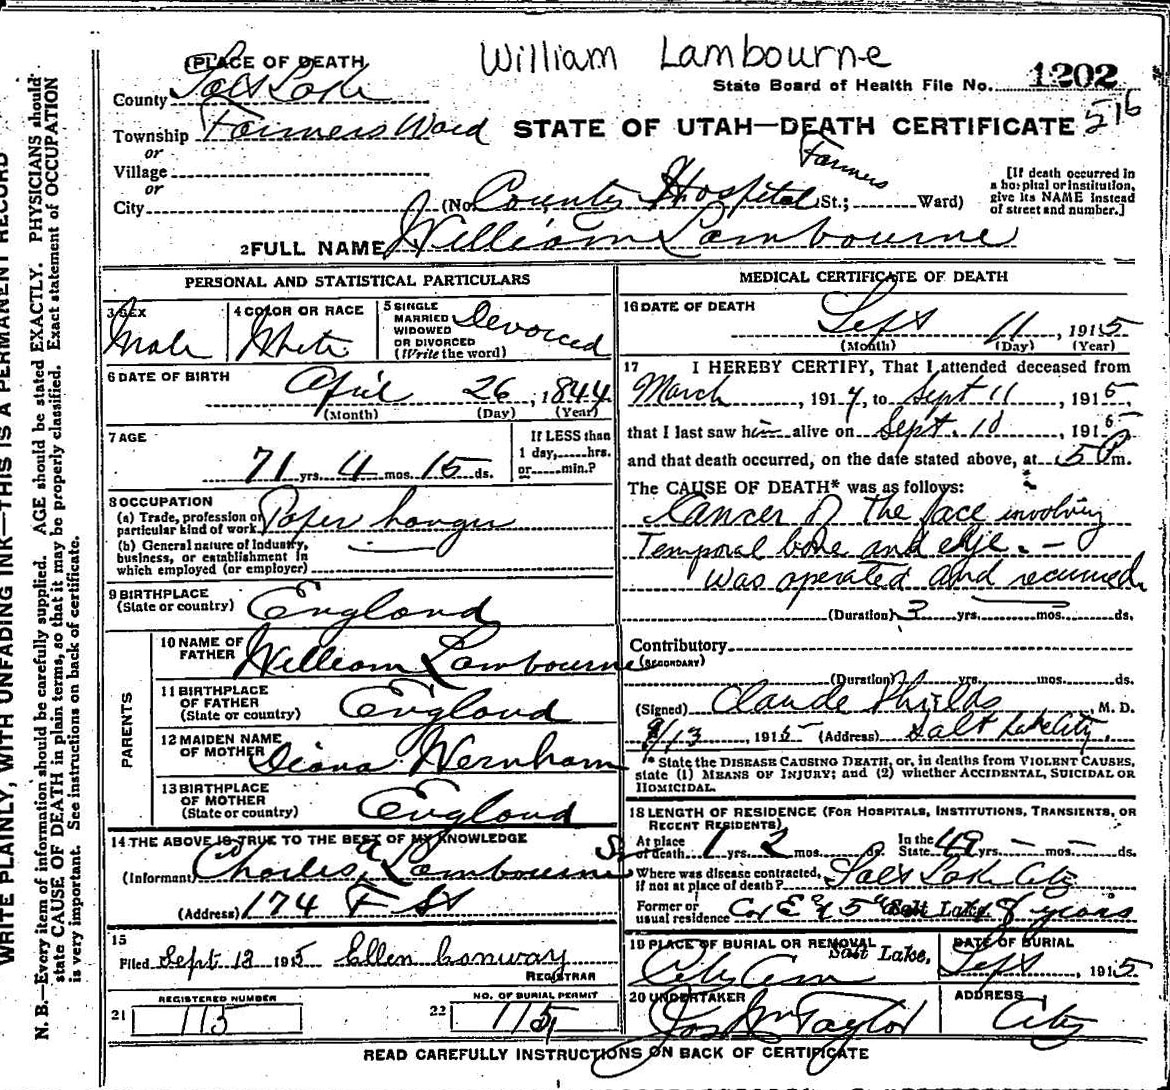 William Lambourne
(PLACE OF DEATH
State Board of Health File No. 1202
County Salt Lake
516
Township Farmers Ward
STATE OF UTAH—DEATH CERTIFICATE
or
Village
or
Farmers
City (No. County Hospital St.; Ward)
[If death occurred in
a hospital or institution,
give its NAME instead
of street and number.]
2 FULL NAME William Lambourne
PERSONAL AND STATISTICAL PARTICULARS
3 SEX
Male
4 COLOR OR RACE
White
5 SINGLE
MARRIED
WIDOWED
OR DIVORCED
(Write the word)
Devorced
6 DATE OF BIRTH
April 26, 1844
(Month) (Day) (Year)
7 AGE
71 yrs. 4 mos. 15 ds.
If LESS than
1 day, hrs.
or min.?
8 OCCUPATION
(a) Trade, profession or
particular kind of work Paper hanger
(b) General nature of Industry,
business, or establishment in
which employed (or employer)
9 BIRTHPLACE
(State or country) England
PARENTS
10 NAME OF
FATHER William Lambourne
11 BIRTHPLACE
OF FATHER
(State or country) England
12 MAIDEN NAME
OF MOTHER Diana Wernham
13 BIRTHPLACE
OF MOTHER
(State or country) England
14 THE ABOVE IS TRUE TO THE BEST OF MY KNOWLEDGE
(Informant) Charles A Lambourne Sr
(Address) 174 F St
15
Filed Sept 12 1915 Ellen Conway
REGISTRAR
REGISTERED NUMBER
21 115
NO. OF BURIAL PERMIT
22 115
MEDICAL CERTIFICATE OF DEATH
16 DATE OF DEATH
Sept 11, 1915
(Month) (Day) (Year)
17 I HEREBY CERTIFY, That I attended deceased from
March, 1914, to Sept 11, 1915,
that I last saw him alive on Sept. 10, 1915
and that death occurred, on the date stated above, at 5 P m.
The CAUSE OF DEATH* was as follows:
Cancer of the face involving
Temporal bone and eye. -
was operated and recurred
(Duration) 3 yrs. mos. ds.
Contributory
(SECONDARY)
(Duration) yrs. mos. ds.
(Signed) Claude Shields, M. D.
9/13, 1915 (Address) Salt Lake City.
* State the DISEASE CAUSING DEATH, or, in deaths from VIOLENT CAUSES,
state (1) MEANS OF INJURY; and (2) whether ACCIDENTAL, SUICIDAL OR
HOMICIDAL.
18 LENGTH OF RESIDENCE (FOR HOSPITALS, INSTITUTIONS, TRANSIENTS, OR
RECENT RESIDENTS)
At place
of death 1 yrs. 2 mos. ds. In the State 49 yrs. mos. ds.
Where was disease contracted,
if not at place of death? Salt Lake City
Former or
usual residence Cor E & 5 Salt Lake 8 years
19 PLACE OF BURIAL OR REMOVAL
Salt Lake,
City Cem
DATE OF BURIAL
Sept, 1915
20 UNDERTAKER
Jos Wm Taylor
ADDRESS
City
READ CAREFULLY INSTRUCTIONS ON BACK OF CERTIFICATE
WRITE PLAINLY, WITH UNFADING INK—THIS IS A PERMANENT RECORD
N. B.—Every item of information should be carefully supplied. AGE should be stated EXACTLY. PHYSICIANS should
state CAUSE OF DEATH in plain terms, so that it may be properly classified. Exact statement of OCCUPATION
is very important. See instructions on back of certificate.